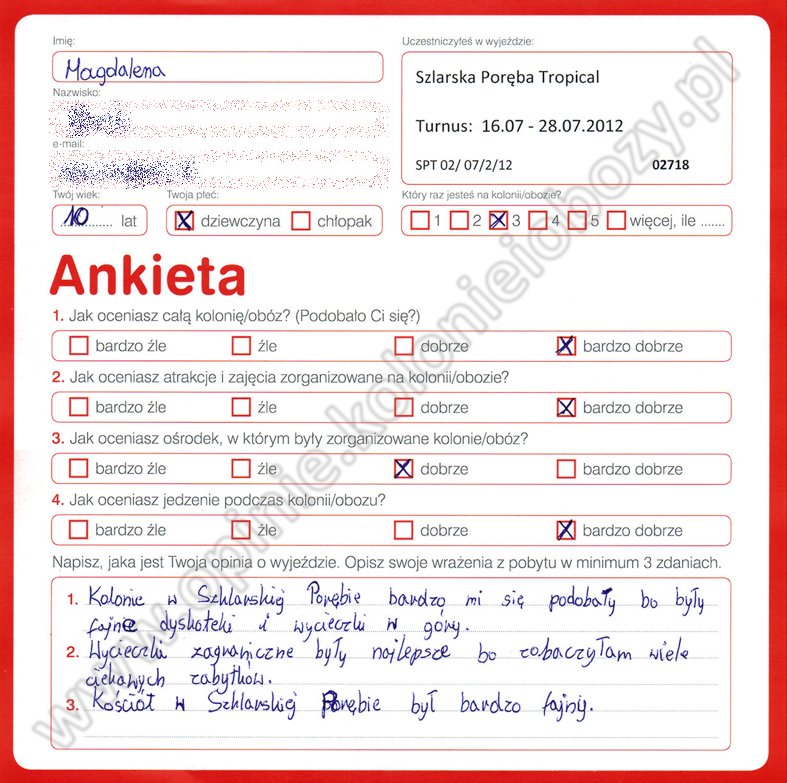 Imię:
Magdalena
Nazwisko:
e-mail:
Twój wiek:
10 lat
Twoja płeć:
X dziewczyna chłopak
Uczestniczyłeś w wyjeździe:
Szlarska Poręba Tropical
Turnus: 16.07 - 28.07.2012
SPT 02/ 07/2/12 02718
Który raz jesteś na kolonii/obozie?
1 2 X 3 4 5 więcej, ile .......
Ankieta
1. Jak oceniasz całą kolonię/obóz? (Podobało Ci się?)
bardzo źle źle dobrze X bardzo dobrze
2. Jak oceniasz atrakcje i zajęcia zorganizowane na kolonii/obozie?
bardzo źle źle dobrze X bardzo dobrze
3. Jak oceniasz ośrodek, w którym były zorganizowane kolonie/obóz?
bardzo źle źle X dobrze bardzo dobrze
4. Jak oceniasz jedzenie podczas kolonii/obozu?
bardzo źle źle dobrze X bardzo dobrze
Napisz, jaka jest Twoja opinia o wyjeździe. Opisz swoje wrażenia z pobytu w minimum 3 zdaniach.
1. Kolonie w Szklarskiej Porębie bardzo mi się podobały bo były
fajne dyskoteki i wycieczki w góry.
2. Wycieczki zagraniczne były najlepsze bo zobaczyłam wiele
ciekawych zabytków.
3. Kościół w Szklarskiej Porębie był bardzo fajny.
www.opinie.kolonieiobozy.pl